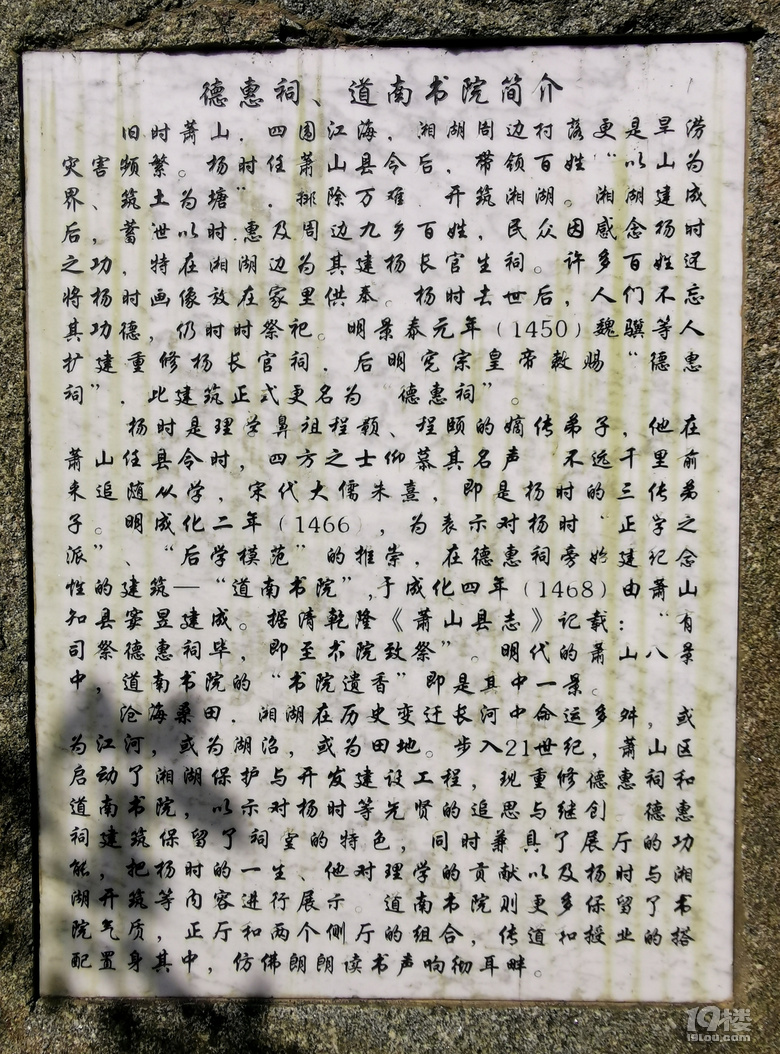 德惠祠、道南书院简介
旧时萧山，四围江海，湘湖周边村落更是旱涝
灾害频繁。杨时任萧山县令后，带领百姓“以山为
界、筑土为塘”，排除万难 开筑湘湖。湘湖建成
后，蓄泄以时，惠及周边九乡百姓，民众因感念杨时
之功，特在湘湖边为其建杨长官生祠。许多百姓还
将杨时画像放在家里供奉。杨时去世后，人们不忘
其功德，仍时时祭祀。明景泰元年(1450)魏骥等人
扩建重修杨长官祠，后明宪宗皇帝敕赐“德惠
祠”，此建筑正式更名为“德惠祠”。
杨时是理学鼻祖程颢、程颐的嫡传弟子，他在
萧山任县令时，四方之士仰慕其名声 不远千里前
来追随从学，宋代大儒朱熹，即是杨时的三传弟
子。明成化二年(1466)，为表示对杨时“正学之
派”、“后学模范”的推崇，在德惠祠旁始建纪念
性的建筑—“道南书院”,于成化四年(1468)由萧山
知县窦昱建成。据清乾隆《萧山县志》记载：“有
司祭德惠祠毕，即至书院致祭”。明代的萧山八景
中，道南书院的“书院遗香”即是其中一景。
沧海桑田，湘湖在历史变迁长河中命运多舛，或
为江河，或为湖沼，或为田地。步入21世纪，萧山区
启动了湘湖保护与开发建设工程，现重修德惠祠和
道南书院，以示对杨时等先贤的追思与继创 德惠
祠建筑保留了祠堂的特色，同时兼具了展厅的功
能，把杨时的一生、他对理学的贡献以及杨时与湘
湖开筑等内容进行展示。道南书院则更多保留了书
院气质，正厅和两个侧厅的组合，传道和授业的搭
配置身其中，仿佛朗朗读书声响彻耳畔。
19楼
19lou.com